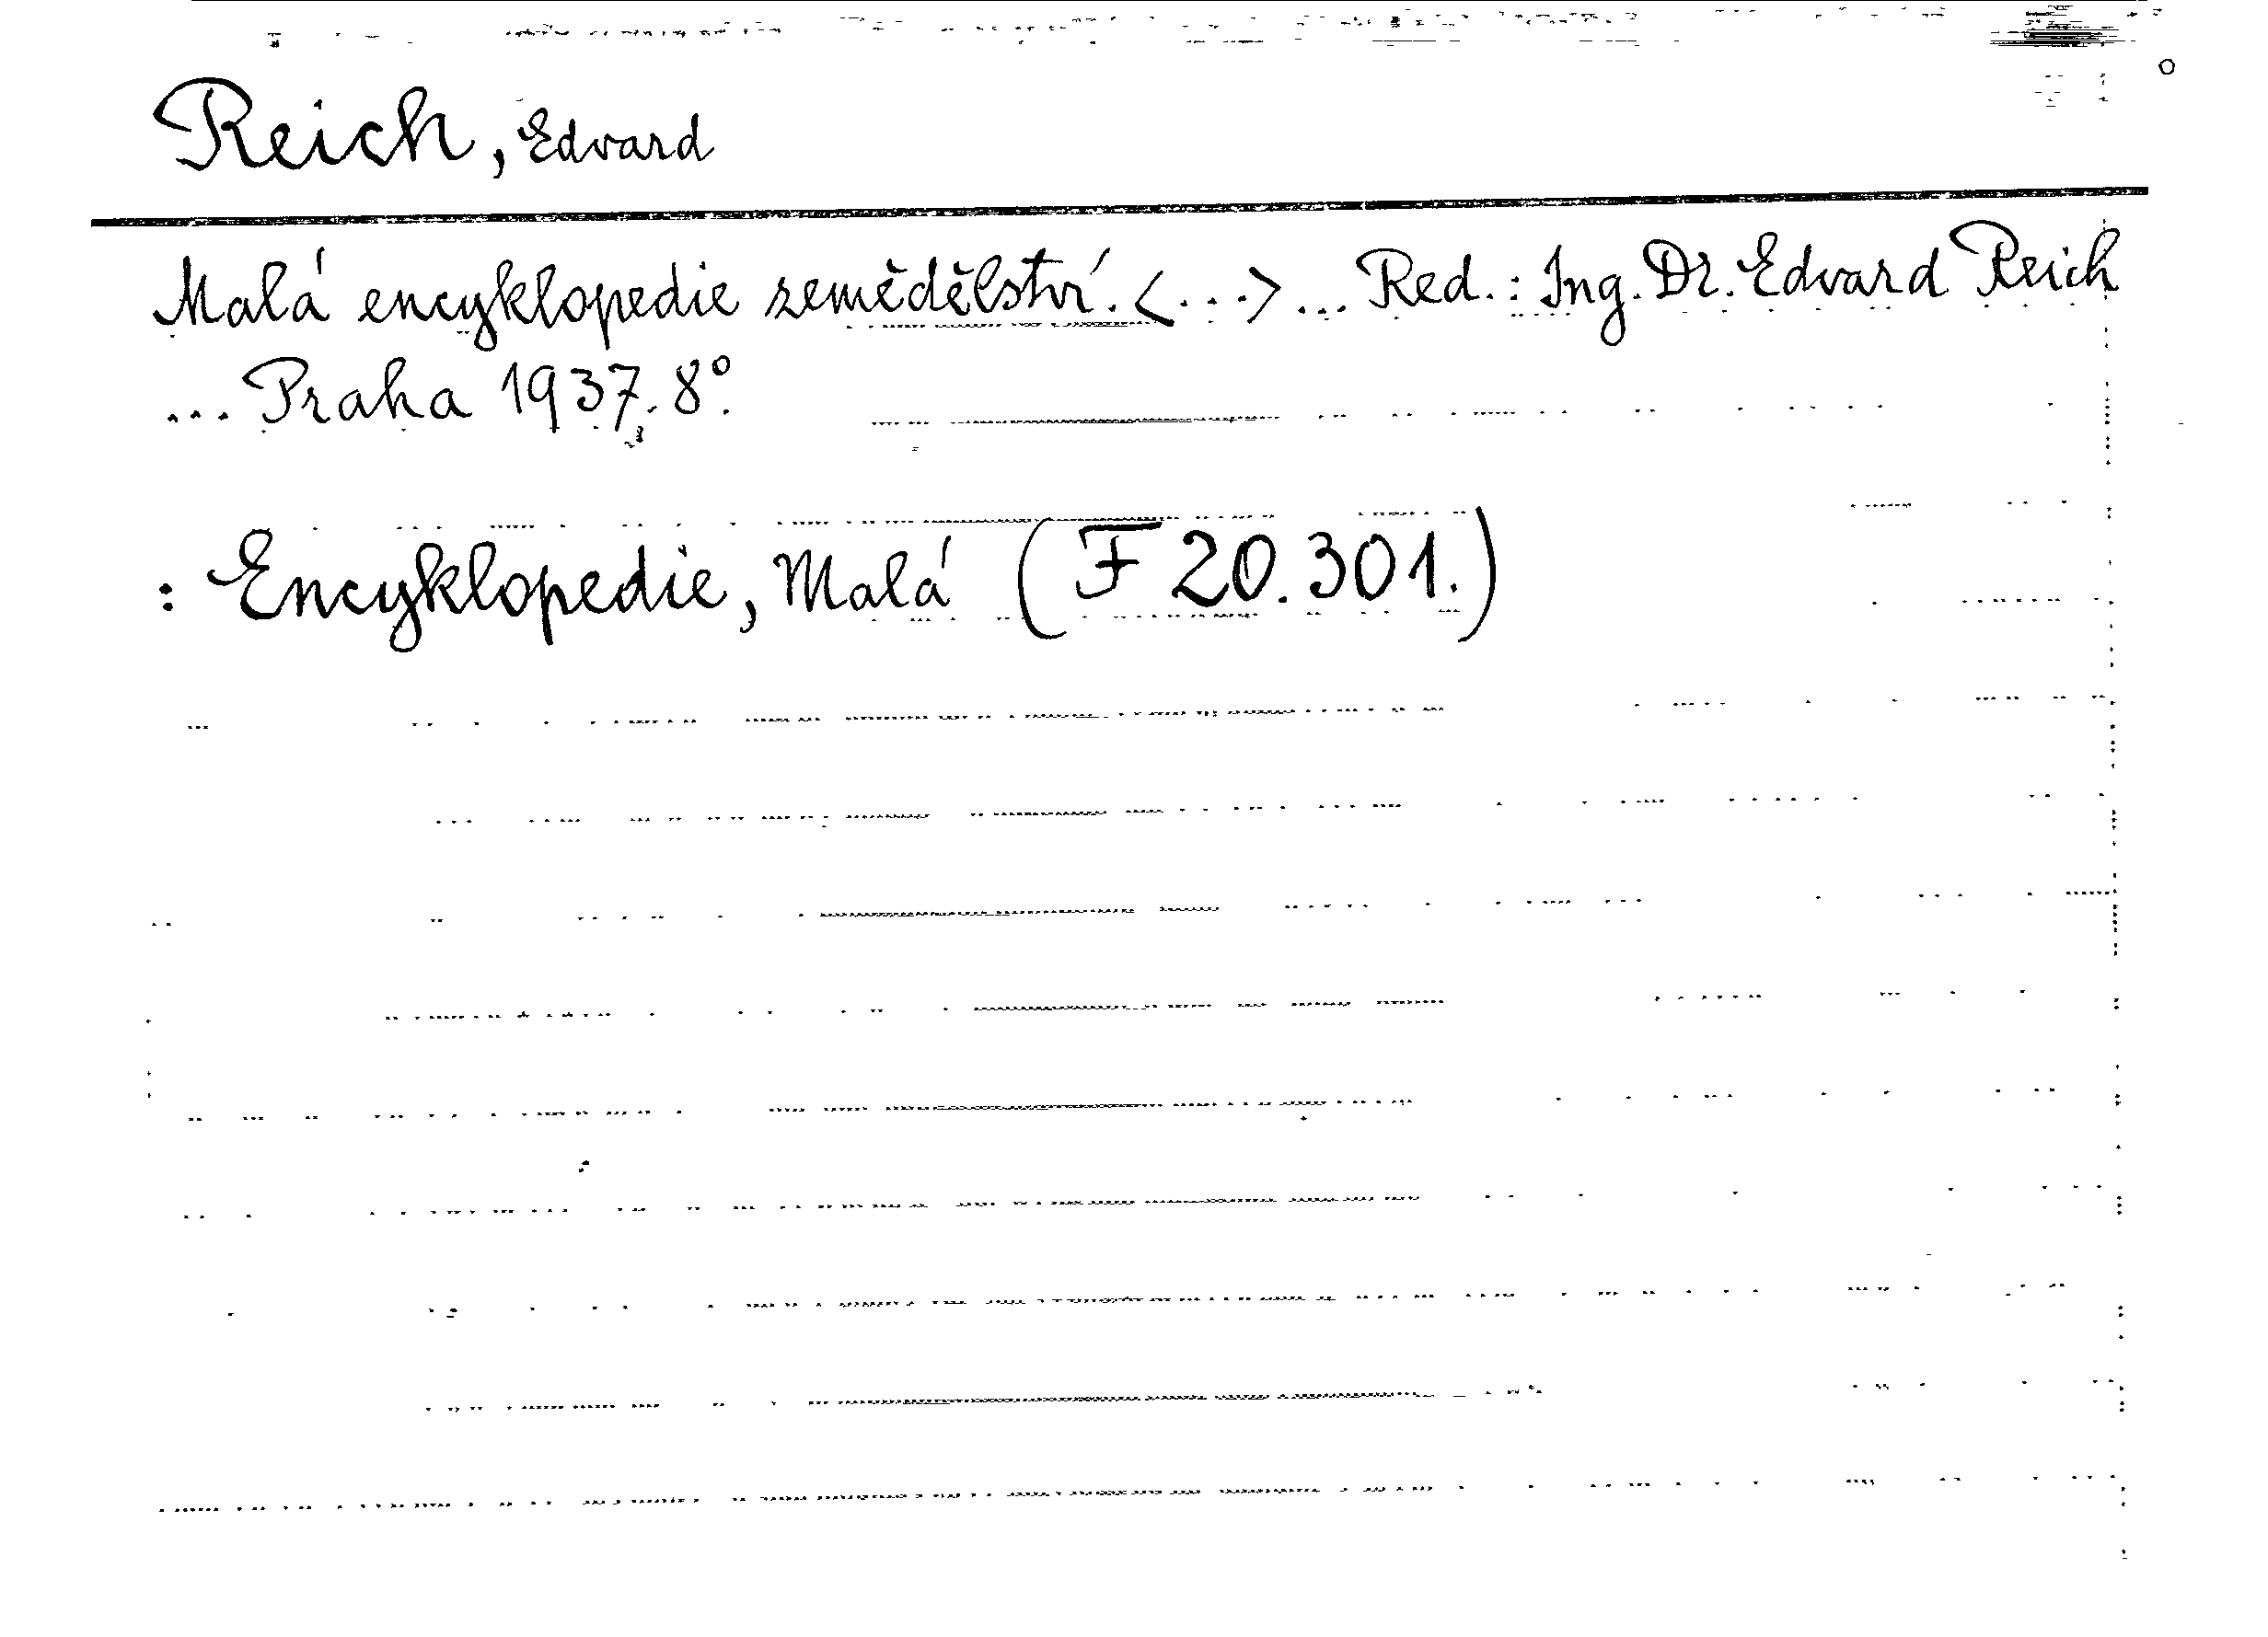 Reich, Edvard
Malá encyklopedie zemědělství. <...> ... Red.: Ing. Dr. Edvard Reich
... Praha 1937. 8°.
: Encyklopedie, Malá (F 20.301.)